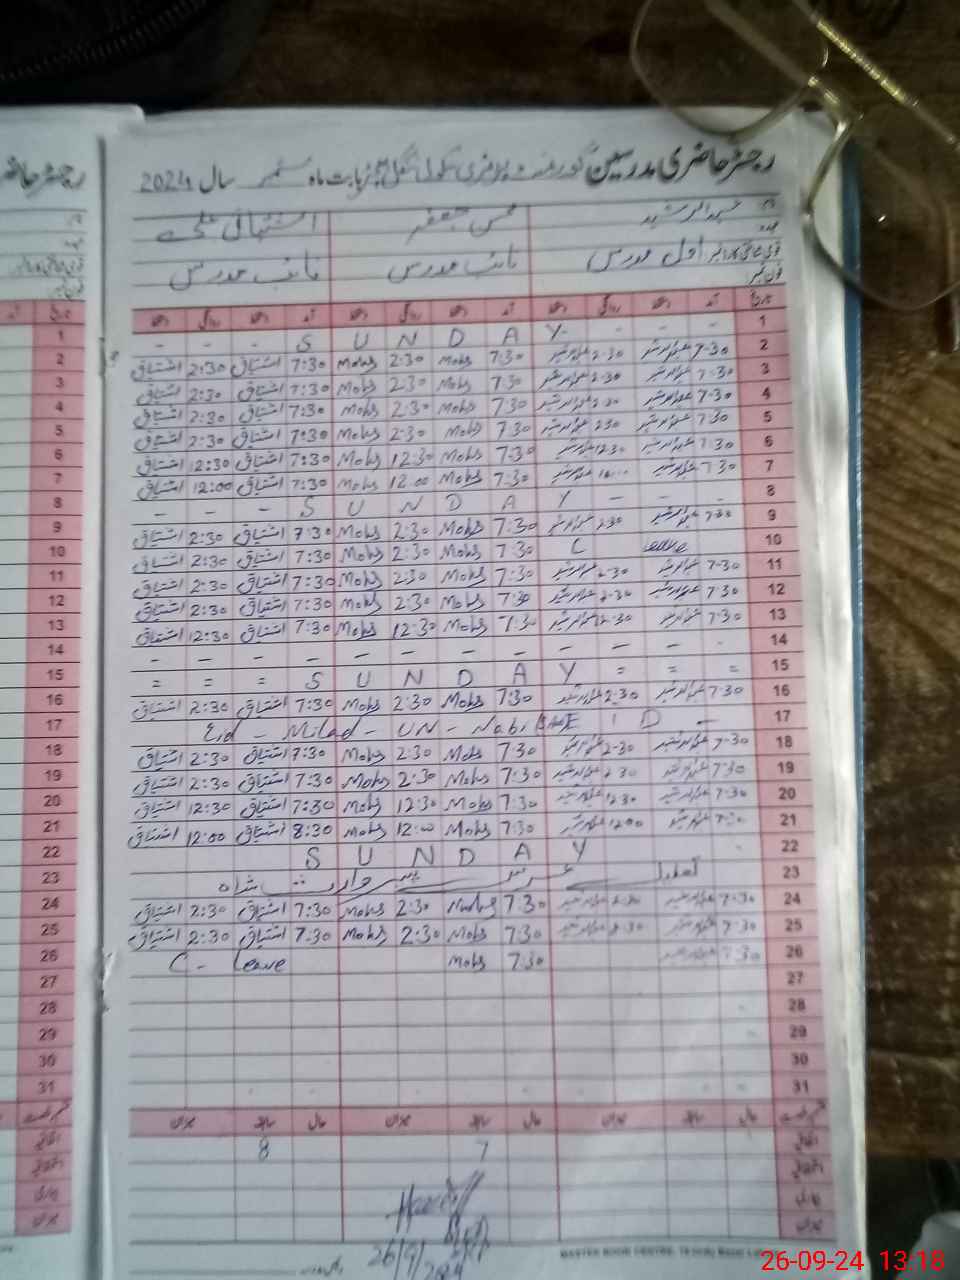 رجسٹر حاضری مدرسین گورنمنٹ پرائمری سکول بابت ماہ ستمبر سال 2024
نام عبدالرشید محسن جعفر اشتیاق علی
عہدہ اول مدرس نائب مدرس نائب مدرس
تاریخ آمد دستخط روانگی دستخط آمد دستخط روانگی دستخط آمد دستخط روانگی دستخط
1 - - - S U N D A Y - - -
2 7-30 عبدالرشید 2-30 عبدالرشید 7:30 Mohs 2:30 Mohs 7:30 اشتیاق 2:30 اشتیاق
3 7-30 عبدالرشید 2-30 عبدالرشید 7:30 Mohs 2:30 Mohs 7:30 اشتیاق 2:30 اشتیاق
4 7-30 عبدالرشید 2-30 عبدالرشید 7:30 Mohs 2:30 Mohs 7:30 اشتیاق 2:30 اشتیاق
5 7-30 عبدالرشید 2-30 عبدالرشید 7:30 Mohs 2:30 Mohs 7:30 اشتیاق 2:30 اشتیاق
6 7-30 عبدالرشید 12-30 عبدالرشید 7:30 Mohs 12:30 Mohs 7:30 اشتیاق 12:30 اشتیاق
7 7-30 عبدالرشید عبدالرشید 7:30 Mohs 12:00 Mohs 7:30 اشتیاق 12:00 اشتیاق
8 - - - S U N D A Y - - -
9 7-30 عبدالرشید 2-30 عبدالرشید 7:30 Mohs 2:30 Mohs 7:30 اشتیاق 2:30 اشتیاق
10 C leave 7:30 Mohs 2:30 Mohs 7:30 اشتیاق 2:30 اشتیاق
11 7-30 عبدالرشید 2-30 عبدالرشید 7:30 Mohs 2:30 Mohs 7:30 اشتیاق 2:30 اشتیاق
12 7-30 عبدالرشید 2-30 عبدالرشید 7:30 Mohs 2:30 Mohs 7:30 اشتیاق 2:30 اشتیاق
13 7-30 عبدالرشید 12-30 عبدالرشید 7:30 Mohs 12:30 Mohs 7:30 اشتیاق 12:30 اشتیاق
14 - - - - - - - - - - -
15 = = = S U N D A Y = = =
16 7-30 عبدالرشید 2-30 عبدالرشید 7:30 Mohs 2:30 Mohs 7:30 اشتیاق 2:30 اشتیاق
17 Eid - Milad - UN - Nabi E I D -
18 7-30 عبدالرشید 2-30 عبدالرشید 7:30 Mohs 2:30 Mohs 7:30 اشتیاق 2:30 اشتیاق
19 7-30 عبدالرشید 2-30 عبدالرشید 7:30 Mohs 2:30 Mohs 7:30 اشتیاق 2:30 اشتیاق
20 7-30 عبدالرشید 12-30 عبدالرشید 7:30 Mohs 12:30 Mohs 7:30 اشتیاق 12:30 اشتیاق
21 7-30 عبدالرشید 12-00 عبدالرشید 7:30 Mohs 12:00 Mohs 8:30 اشتیاق 12:00 اشتیاق
22 S U N D A Y
23 تعطیل عرس پیر وارث شاہ
24 7-30 عبدالرشید 2-30 عبدالرشید 7:30 Mohs 2:30 Mohs 7:30 اشتیاق 2:30 اشتیاق
25 7-30 عبدالرشید 2-30 عبدالرشید 7:30 Mohs 2:30 Mohs 7:30 اشتیاق 2:30 اشتیاق
26 7-30 عبدالرشید 7:30 Mohs C - Leave
27
28
29
30
31
حال سابقہ میزان حال سابقہ میزان حال سابقہ میزان
اتفاقیہ 7 8
بیماری
میزان
26/9/2024
MASTER BOOK CENTRE
رجسٹر حاضر
تاریخ آمد
1
2
3
4
5
6
7
8
9
10
11
12
13
14
15
16
17
18
19
20
21
22
23
24
25
26
27
28
29
30
31
26-09-24 13:18